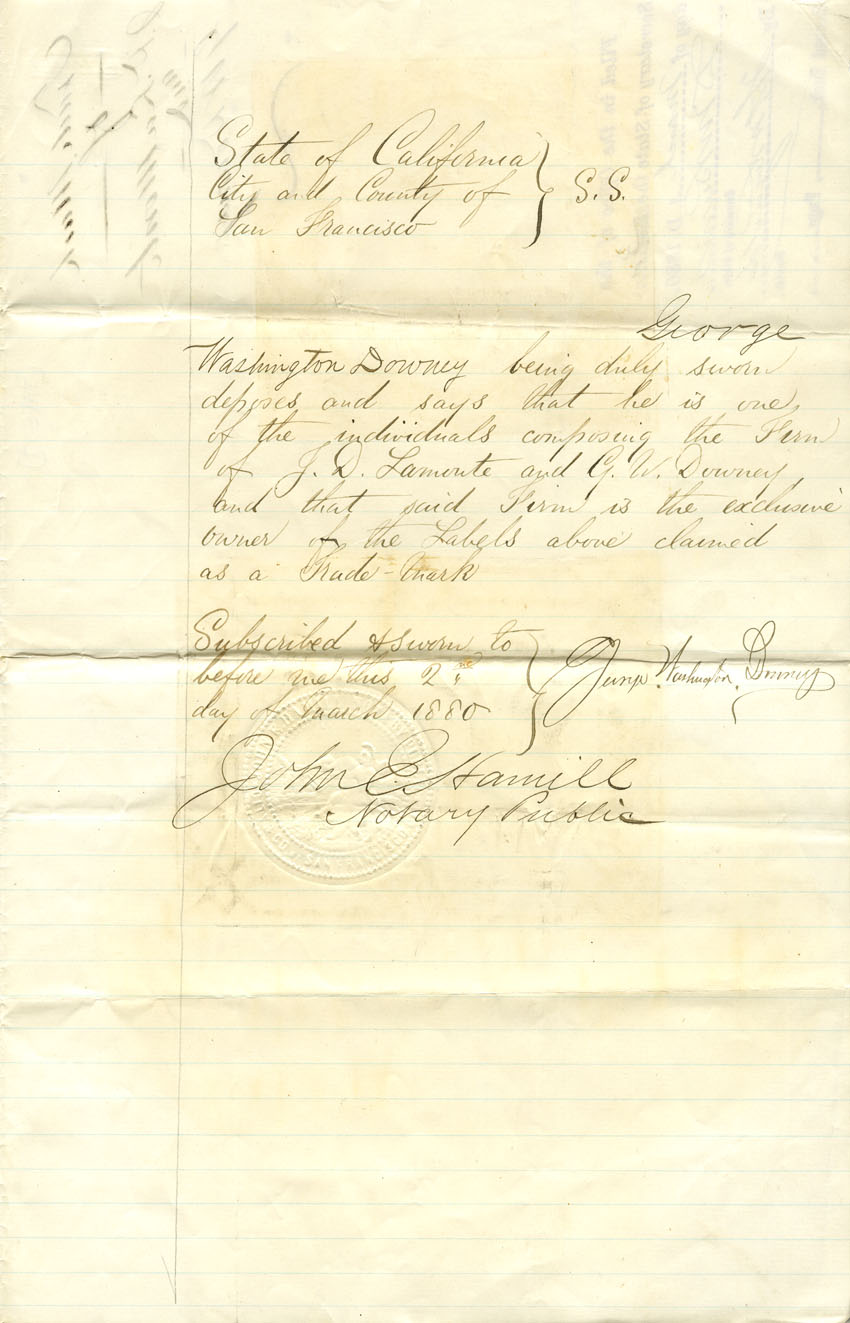 State of California
City and County of } S.S.
San Francisco
George
Washington Downey being duly sworn
deposes and says that he is one
of the individuals composing the Firm
of J. D. Lamonte and G. W. Downey
and that said Firm is the exclusive
owner of the Labels above claimed
as a Trade-Mark
Subscribed & Sworn to
before me this 2nd } Washington Downey
day of March 1880
John E. Hamill
Notary Public